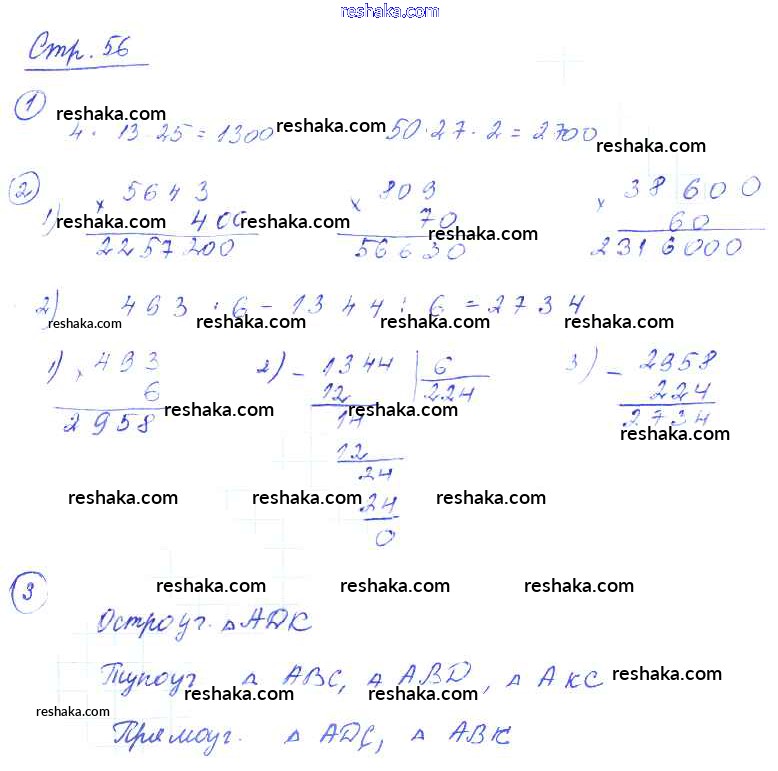 reshaka.com
Стр. 56
1
reshaka.com reshaka.com
4 · 13 · 25 = 1300 50 · 27 · 2 = 2700
reshaka.com
2
1) × 5643 × 809 × 38 600
reshaka.com reshaka.com reshaka.com reshaka.com
400 70 60
2257200 56630 2316000
2) 463 : 6 - 1344 : 6 = 2734
reshaka.com reshaka.com reshaka.com reshaka.com
1) × 493 2) - 1344 | 6 3) - 2958
6 12 224 224
2958 14 2734
reshaka.com reshaka.com reshaka.com
12
24
reshaka.com reshaka.com reshaka.com
24
0
3
reshaka.com reshaka.com reshaka.com
Остроуг. △ ADK
Тупоуг △ ABC, △ ABD, △ AKC
reshaka.com reshaka.com reshaka.com
reshaka.com
Прямоуг. △ ADC, △ ABK
reshaka.com reshaka.com reshaka.com